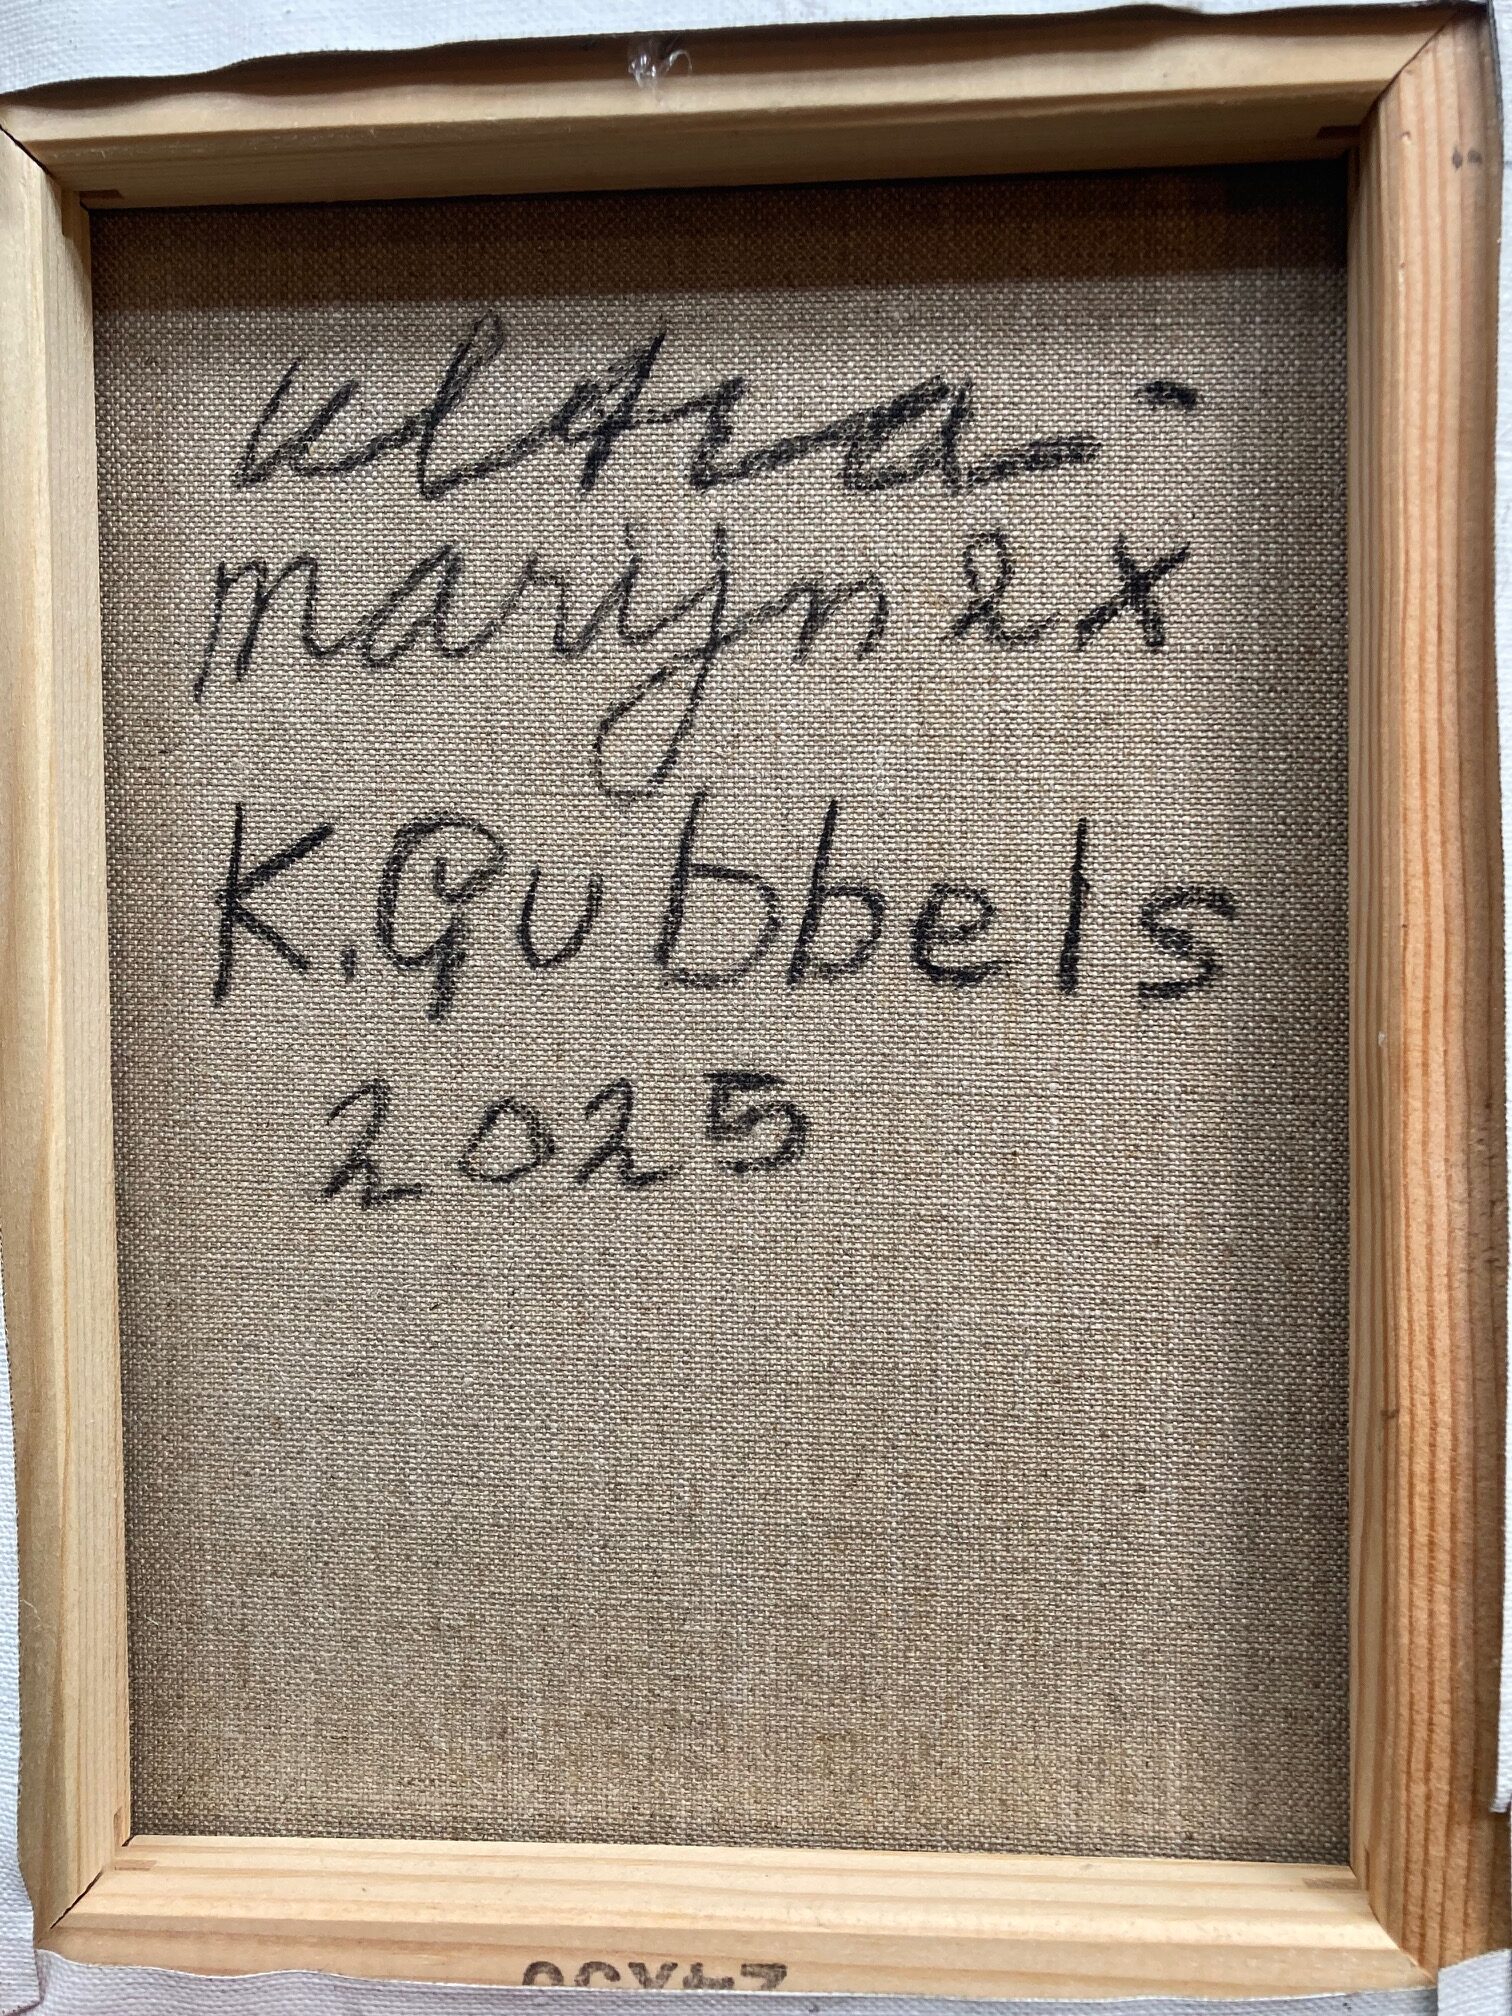 ultra-
marijn 2x
K. Gubbels
2025
24x30